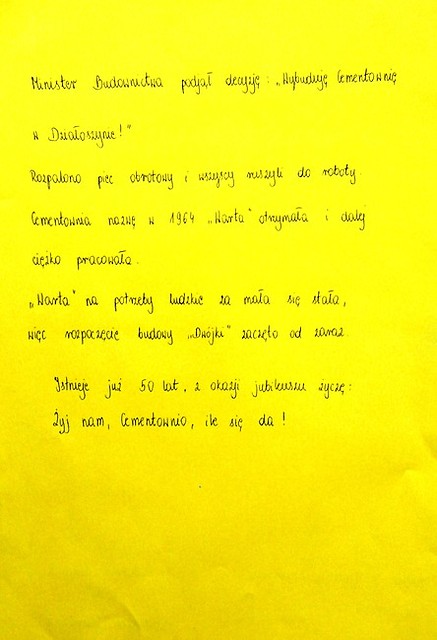 Minister Budownictwa podjął decyzję: „Wybuduję Cementownię
w Działoszynie!"
Rozpalono piec obrotowy i wszyscy ruszyli do roboty.
Cementownia nazwę w 1964 „Warta" otrzymała i dalej
ciężko pracowała.
„Warta" na potrzeby ludzkie za mała się stała,
więc rozpoczęcie budowy „Dwójki" zaczęto od zaraz.
Istnieje już 50 lat, z okazji jubileuszu życzę:
Żyj nam, Cementownio, ile się da!